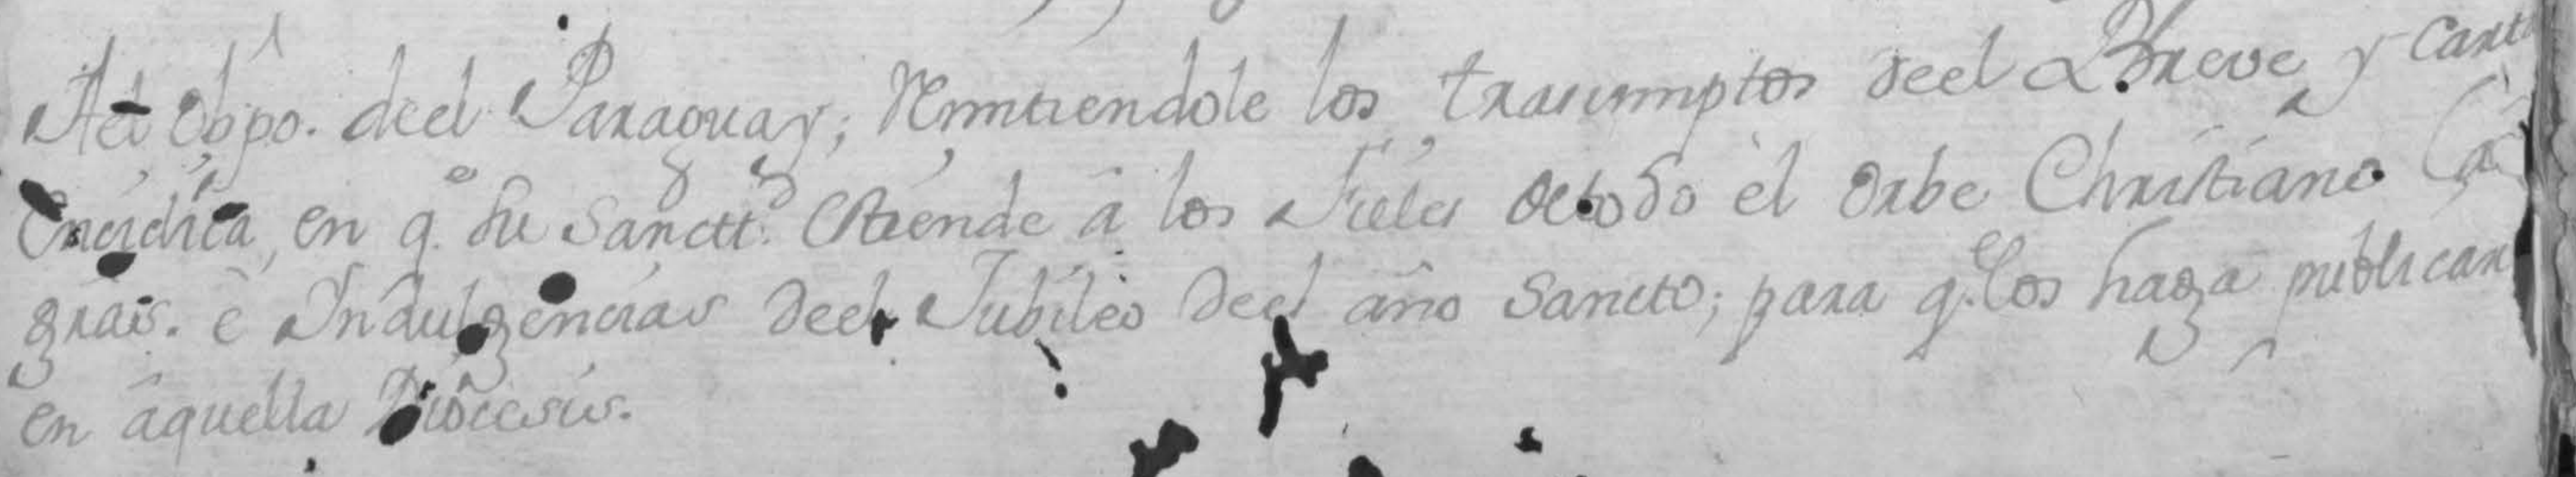 Al Obpo. deel Paraguay; Remitiendole los trasumptos deel Breve, y Carta
Encíclica, en q.e Su Sanctt.d Estiende â los Fieles de todo el Orbe Christiano las
gräis. ê Indulgencias deel Jubileo deel año Sancto; para q.e los haga publicar
en âquella Diôcesis.